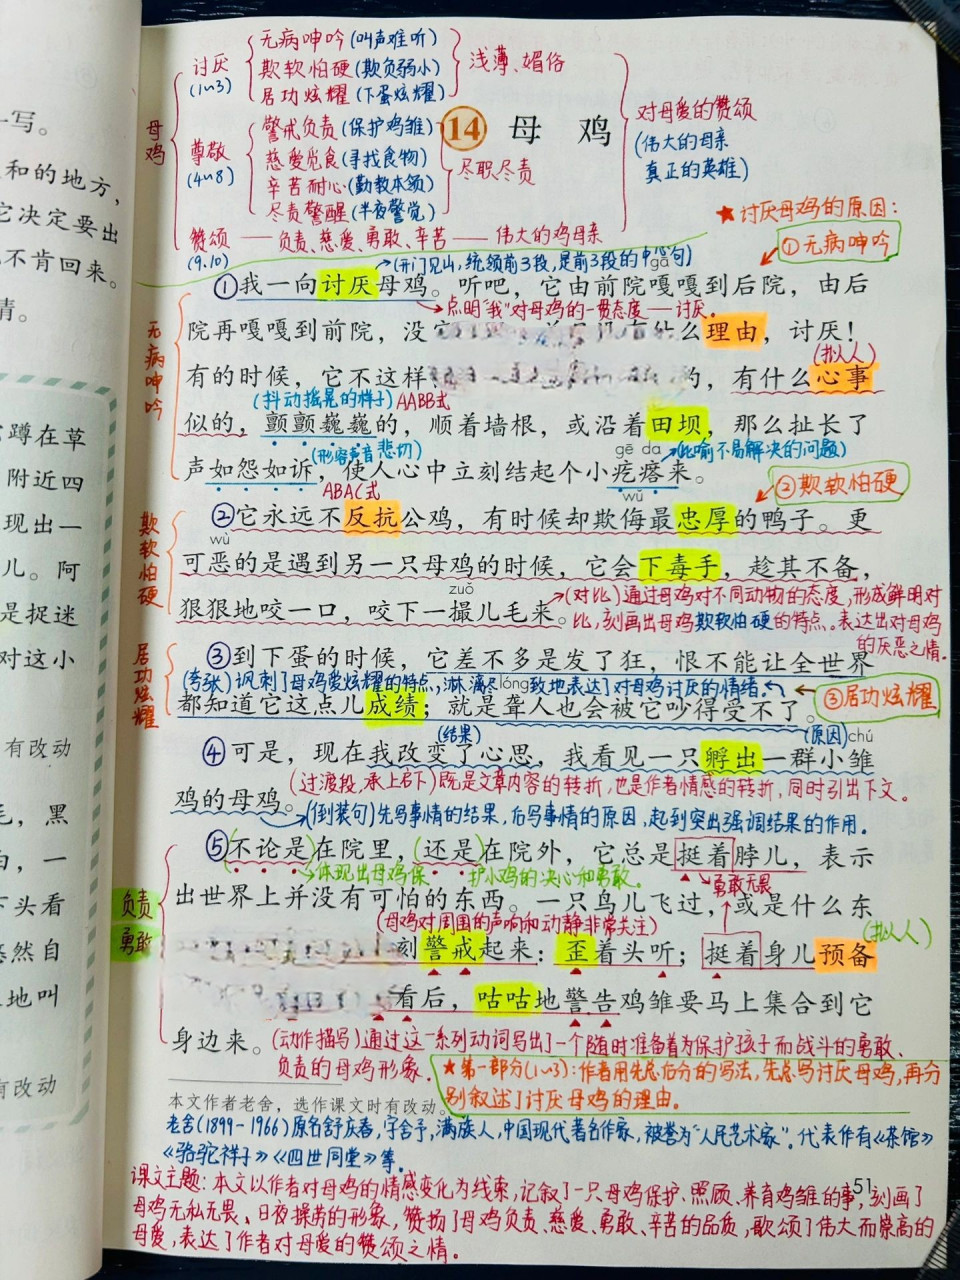 讨厌
(1~3)
无病呻吟(叫声难听)
欺软怕硬(欺负弱小)
居功炫耀(下蛋炫耀)
浅薄、媚俗
母鸡
尊敬
(4~8)
警戒负责(保护鸡雏)
慈爱觅食(寻找食物)
辛苦耐心(勤教本领)
尽责警醒(半夜警觉)
尽职尽责
14 母 鸡
对母爱的赞颂
(伟大的母亲
真正的英雄)
赞颂——负责、慈爱、勇敢、辛苦——伟大的鸡母亲
(9、10)
★讨厌母鸡的原因:
①无病呻吟
(开门见山,统领前3段,是前3段的中心句)
gā
①我一向讨厌母鸡。听吧,它由前院嘎嘎到后院,由后
点明“我”对母鸡的一贯态度——讨厌。
院再嘎嘎到前院,没 么理由,讨厌!
(拟人)
无病呻吟
有的时候,它不这样 的,有什么心事
(抖动摇晃的样子)AABB式
似的,颤颤巍巍的,顺着墙根,或沿着田坝,那么扯长了
(形容声音悲切)
gē da
(比喻不易解决的问题)
声如怨如诉,使人心中立刻结起个小疙瘩来。
ABAC式
wǔ
②欺软怕硬
②它永远不反抗公鸡,有时候却欺侮最忠厚的鸭子。更
wù
欺软怕硬
可恶的是遇到另一只母鸡的时候,它会下毒手,趁其不备,
zuǒ
狠狠地咬一口,咬下一撮儿毛来。
(对比)通过母鸡对不同动物的态度,形成鲜明对
比,刻画出母鸡欺软怕硬的特点。表达出对母鸡
的厌恶之情。
居功炫耀
③到下蛋的时候,它差不多是发了狂,恨不能让全世界
(夸张)讽刺了母鸡爱炫耀的特点,淋漓尽致地表达了对母鸡讨厌的情绪。
lóng
③居功炫耀
都知道它这点儿成绩;就是聋人也会被它吵得受不了。
(结果)
(原因)
chú
④可是,现在我改变了心思,我看见一只孵出一群小雏
(过渡段,承上启下)既是文章内容的转折,也是作者情感的转折,同时引出下文。
鸡的母鸡。
(倒装句)先写事情的结果,后写事情的原因,起到突出强调结果的作用。
⑤不论是在院里,还是在院外,它总是挺着脖儿,表示
体现出母鸡保护小鸡的决心和勇敢。
勇敢无畏
负责
勇敢
出世界上并没有可怕的东西。一只鸟儿飞过,或是什么东
(母鸡对周围的声响和动静非常关注)
(拟人)
刻警戒起来:歪着头听;挺着身儿预备
看后,咕咕地警告鸡雏要马上集合到它
身边来。
(动作描写)通过这一系列动词写出了一个随时准备着为保护孩子而战斗的勇敢、
负责的母鸡形象。
★第一部分(1~3):作者用先总后分的写法,先总写讨厌母鸡,再分
别叙述了讨厌母鸡的理由。
本文作者老舍,选作课文时有改动。
老舍(1899-1966)原名舒庆春,字舍予,满族人,中国现代著名作家,被誉为“人民艺术家”。代表作有《茶馆》
《骆驼祥子》《四世同堂》等。
51
课文主题:本文以作者对母鸡的情感变化为线索,记叙了一只母鸡保护、照顾、养育鸡雏的事,刻画了
母鸡无私无畏、日夜操劳的形象,赞扬了母鸡负责、慈爱、勇敢、辛苦的品质,歌颂了伟大而崇高的
母爱,表达了作者对母爱的赞颂之情。
写。
和的地方,
它决定要出
不肯回来。
情。
蹲在草
附近四
现出一
儿。阿
是捉迷
对这小
有改动
毛,黑
白,一
下头看
悠然自
地叫
有改动